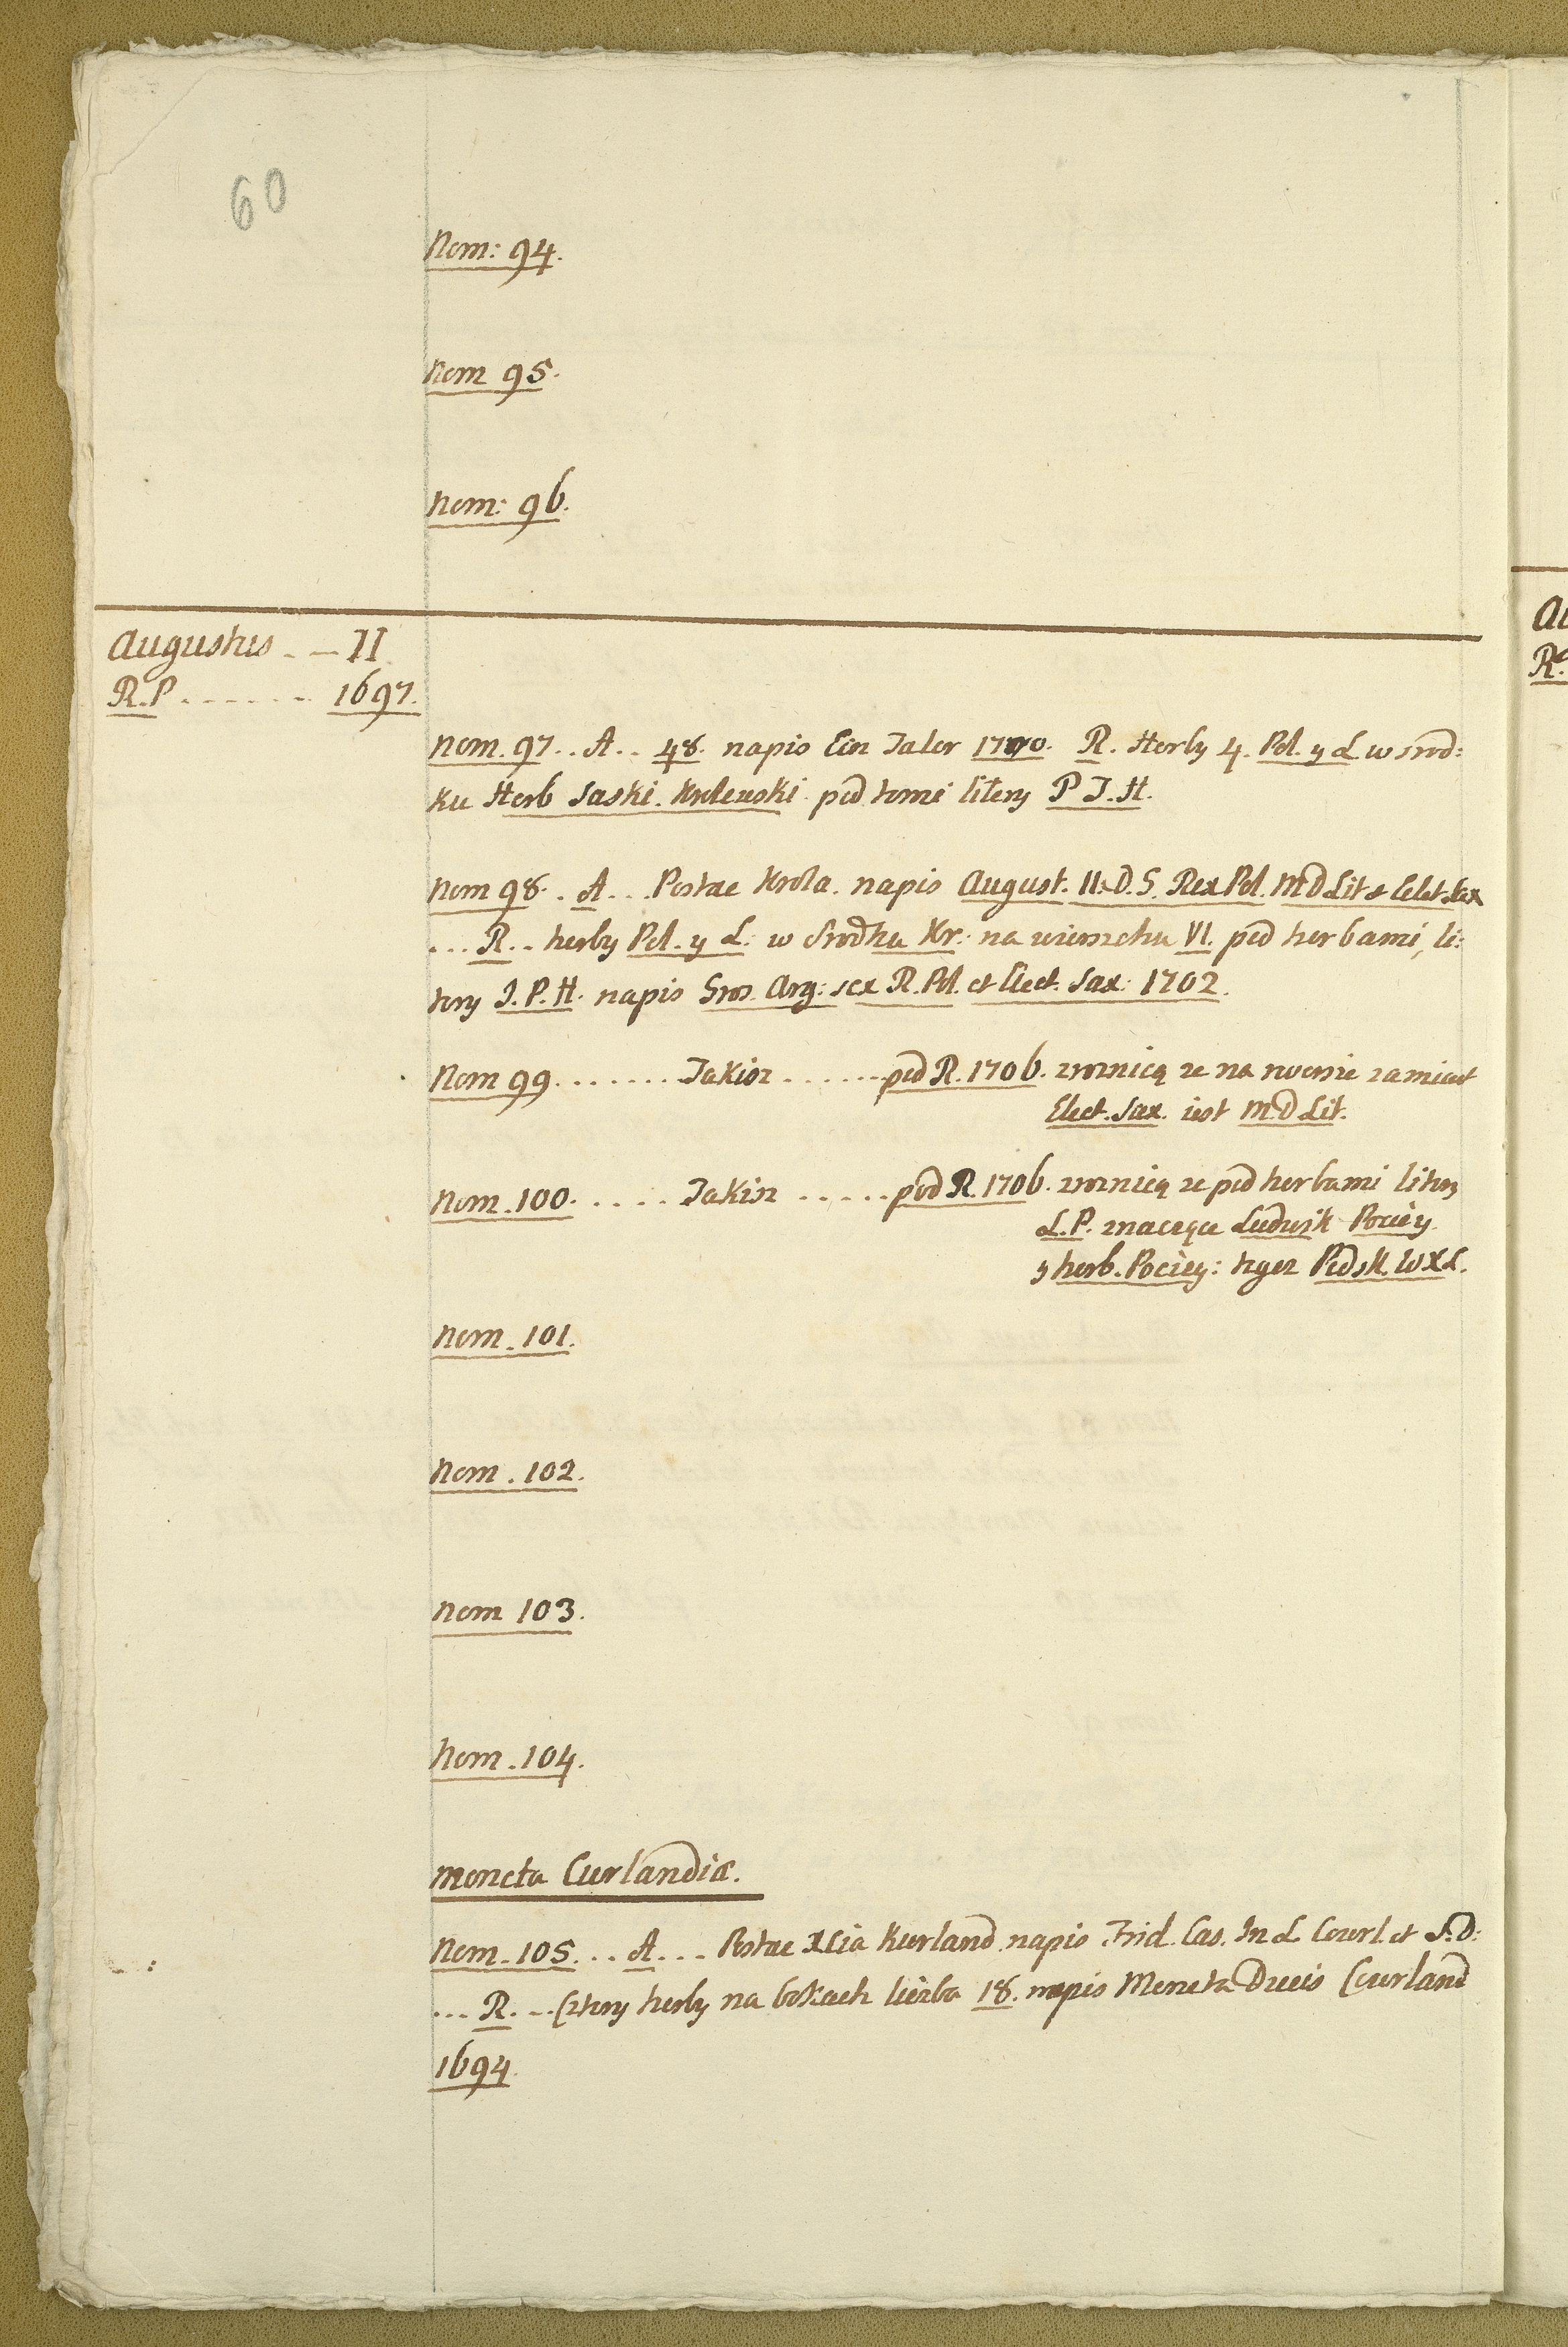 60
Nom: 94.
Nom 95.
Nom: 96.
Augustus - - II
R.P . . . . . . 1697.
Nom. 97 . . A . . 48. napis Ein Taler 1700. R. Herby 4. Pol. y L w srod:
ku Herb Saski. Krolewski. pod temi litery P J. H.
Nom 98. . A . . . Postac Krola. napis August. II. D. G. Rex Pol. M D Lit & Elet Sax
. . . R . . herby Pol. y L: w srodku Kr: na wierzchu VI. pod herbami, li:
tery J. P. H. napis Gros. Arg: sex R. Pol. et Elect. Sax: 1702.
Nom 99. . . . . . . Takisz . . . . . . pod R. 1706. zroznicą ze na rewersie zamiast
Elect. Sax. iest M D Lit.
Nom. 100. . . . . Takisz . . . . . pod R. 1706. zroznicą ze pod herbami litery
L. P. znaczące Ludwik Pociey
y herb. Pociey: tegez Pods K. W X L.
Nom. 101.
Nom. 102.
Nom 103.
Nom. 104.
Moneta Curlandiæ.
Nom. 105. . . A . . . Postac Xcia Kurland. napis Frid. Cas. In L Courl. et S. D:
. . . R. . . Cztery herby na bokach liczba 18. napis Moneta Ducis Courland
1694.